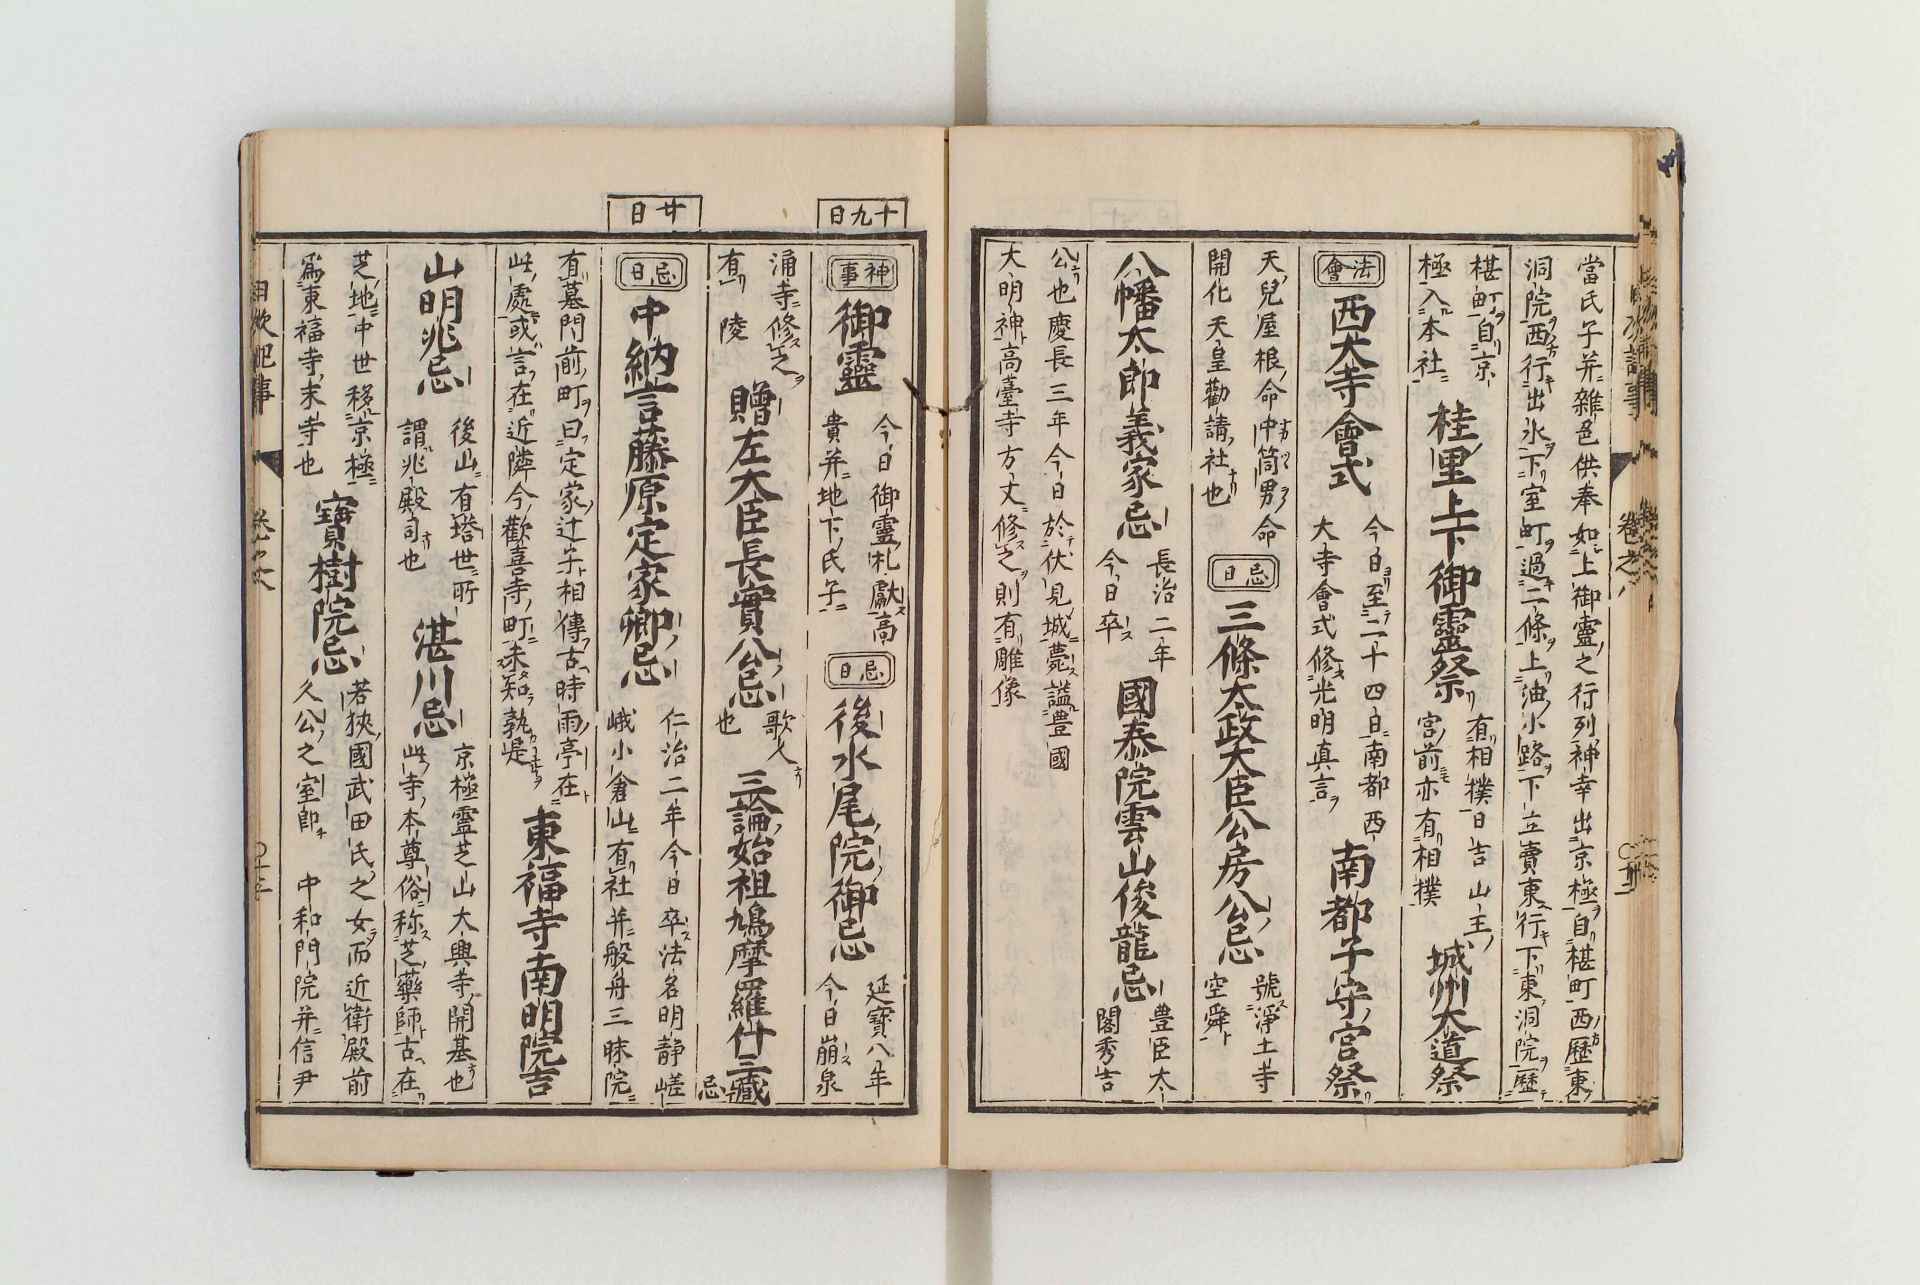 當氏子并雜色供奉如上御靈之行列神幸出京極自椹町西歷東
洞院西行出水下室町過二條上油小路下立賣東行下東洞院歷
椹町自京
極入本社
桂里上下御靈祭
有相撲日吉山王
宮前亦有相撲
城州大道祭
法會
西大寺會式
今日至二十四日南都西
大寺會式修光明真言
南都子守宮祭
天兒屋根命中筒男命
開化天皇勸請社也
忌日
三條太政大臣公房公忌
號淨土寺
空舜
八幡太郎義家忌
長治二年
今日卒
國泰院雲山俊龍忌
豊臣太
閤秀吉
公也慶長三年今日於伏見城薨謚豊國
大明神高臺寺方丈修之則有雕像
十九日
神事
御靈
今日御靈札獻高
貴并地下氏子
忌日
後水尾院御忌
延寶八年
今日崩泉
涌寺修之
有陵
贈左大臣長實公忌
歌人
也
三論始祖鳩摩羅什三藏
忌
廿日
忌日
中納言藤原定家卿忌
仁治二年今日卒法名明静嵯
峨小倉山有社并般舟三昧院
有墓門前町曰定家辻子相傳古時雨亭在
此處或言在近隣今歡喜寺町未知孰是
東福寺南明院吉
山明兆忌
後山有塔世所
謂兆殿司也
湛川忌
京極靈芝山大興寺開基也
此寺本尊俗称芝藥師古在
芝地中世移京極
爲東福寺末寺也
寶樹院忌
若狹國武田氏之女而近衛殿前
久公之室即
中和門院并信尹
日次紀事
卷之八